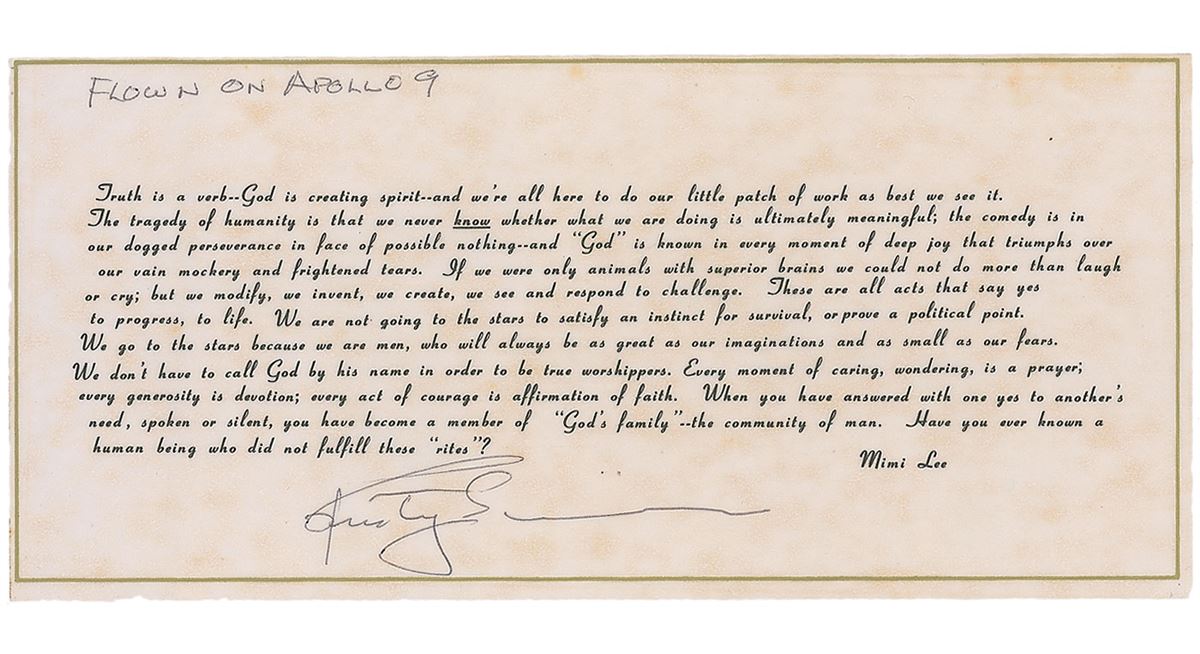 FLOWN ON APOLLO 9
Truth is a verb--God is creating spirit--and we're all here to do our little patch of work as best we see it.
The tragedy of humanity is that we never know whether what we are doing is ultimately meaningful; the comedy is in
our dogged perseverance in face of possible nothing--and "God" is known in every moment of deep joy that triumphs over
our vain mockery and frightened tears. If we were only animals with superior brains we could not do more than laugh
or cry; but we modify, we invent, we create, we see and respond to challenge. These are all acts that say yes
to progress, to life. We are not going to the stars to satisfy an instinct for survival, or prove a political point.
We go to the stars because we are men, who will always be as great as our imaginations and as small as our fears.
We don't have to call God by his name in order to be true worshippers. Every moment of caring, wondering, is a prayer;
every generosity is devotion; every act of courage is affirmation of faith. When you have answered with one yes to another's
need, spoken or silent, you have become a member of "God's family"--the community of man. Have you ever known a
human being who did not fulfill these "rites"?
Mimi Lee